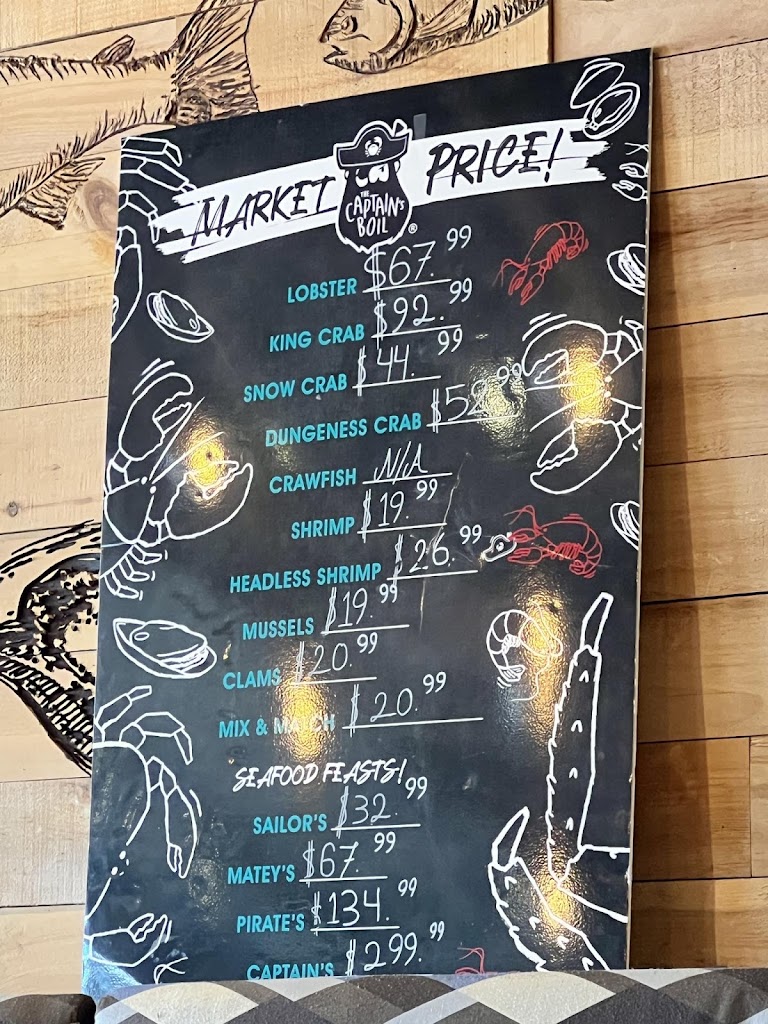 MARKET PRICE!
THE
CAPTAIN'S
BOIL ®
LOBSTER $67.99
KING CRAB $92.99
SNOW CRAB $44.99
DUNGENESS CRAB $52.99
CRAWFISH N/A
SHRIMP $19.99
HEADLESS SHRIMP $26.99
MUSSELS $19.99
CLAMS $20.99
MIX & MATCH $20.99
SEAFOOD FEASTS!
SAILOR'S $32.99
MATEY'S $67.99
PIRATE'S $134.99
CAPTAIN'S $299.99